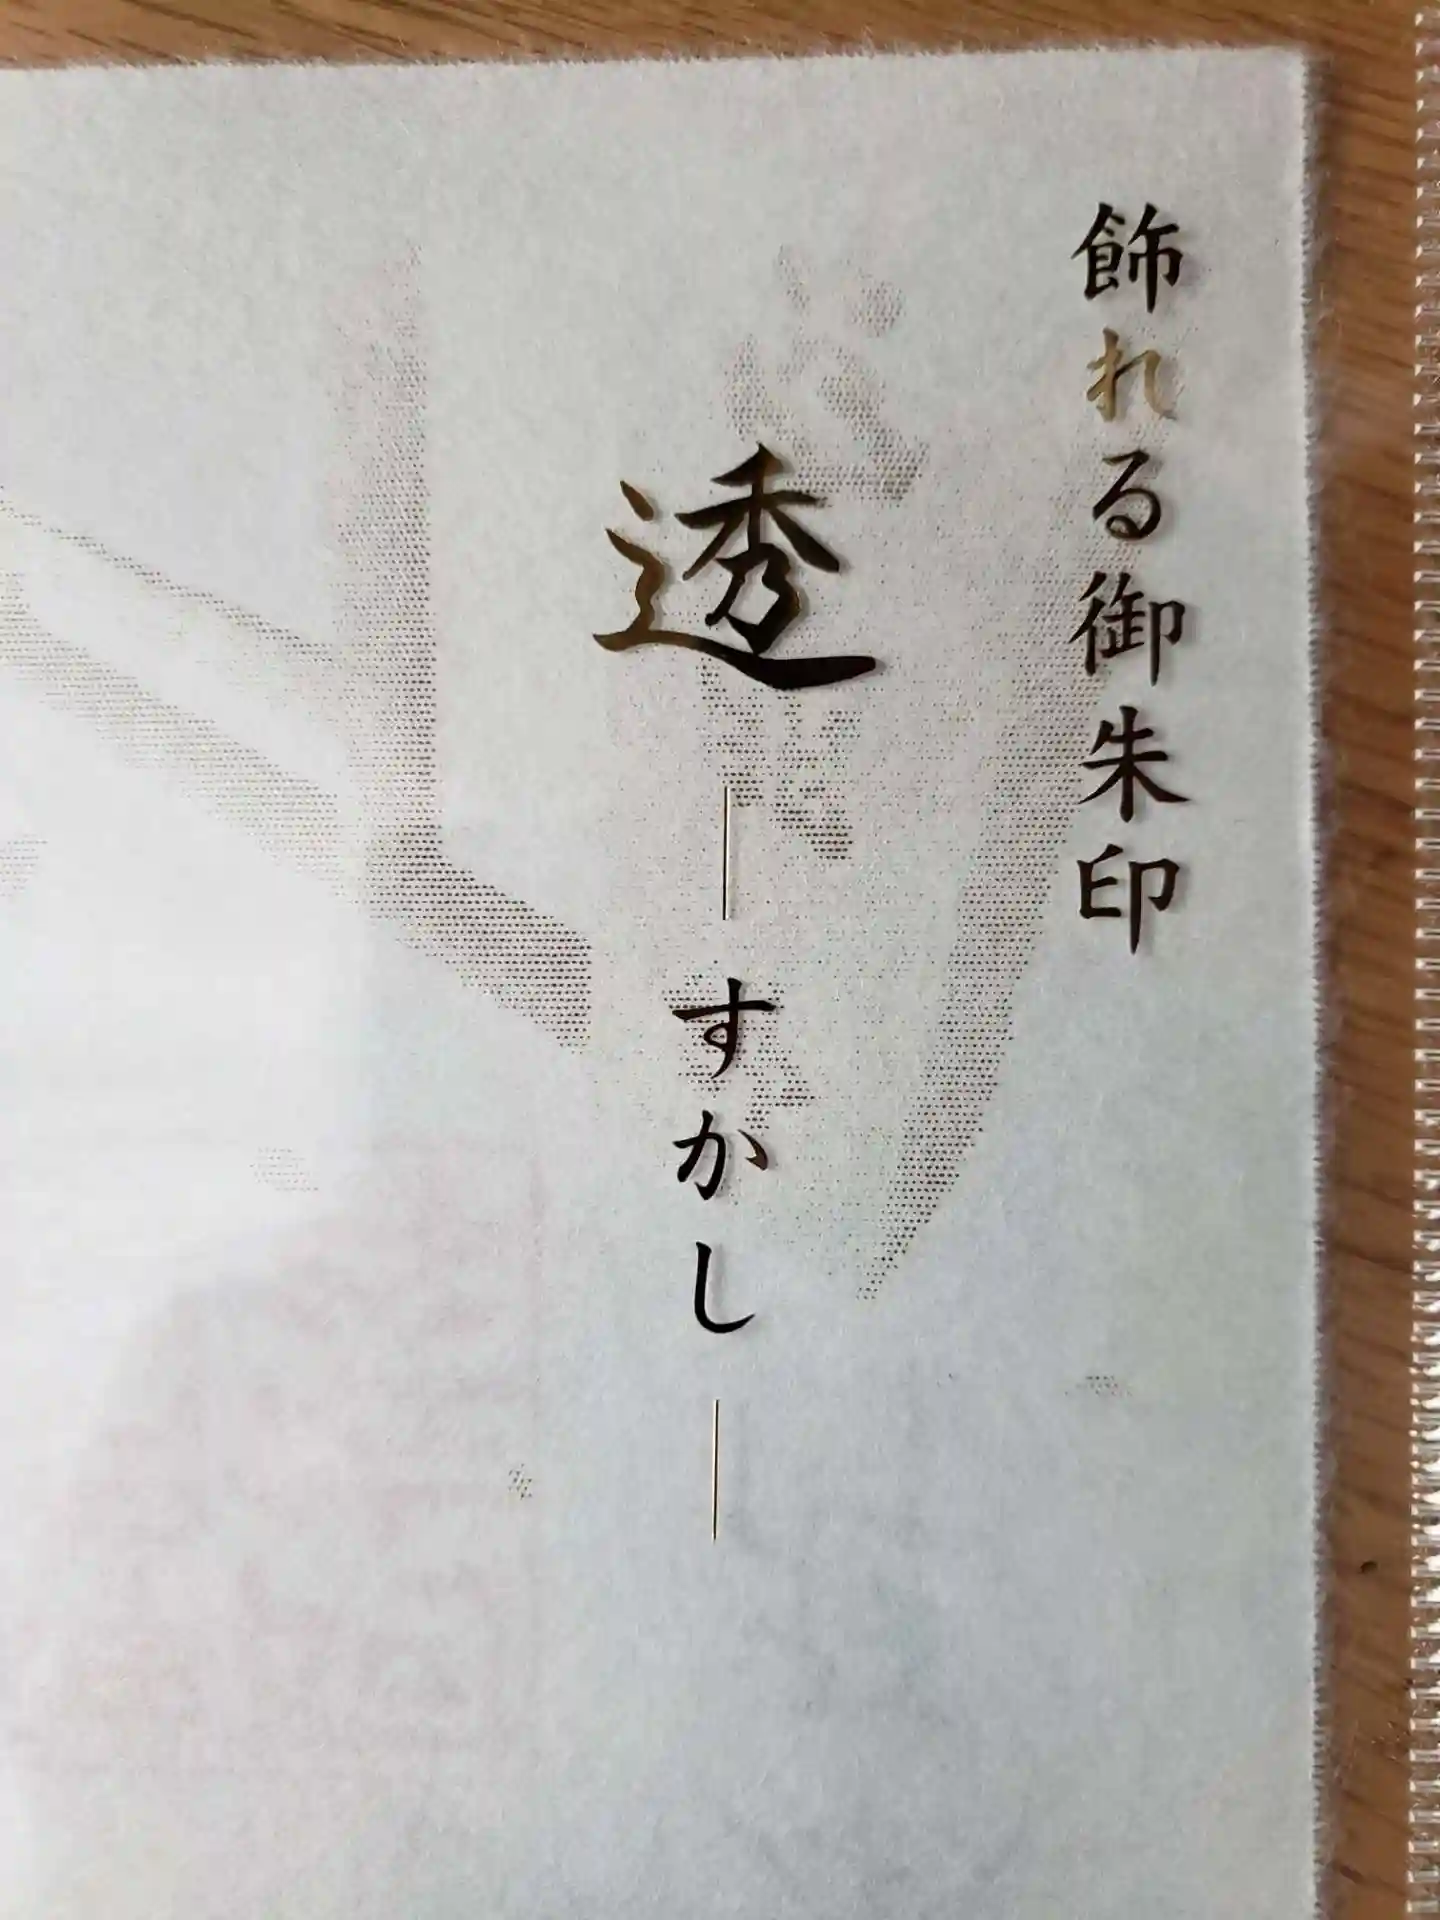 飾れる御朱印
透
―すかし―